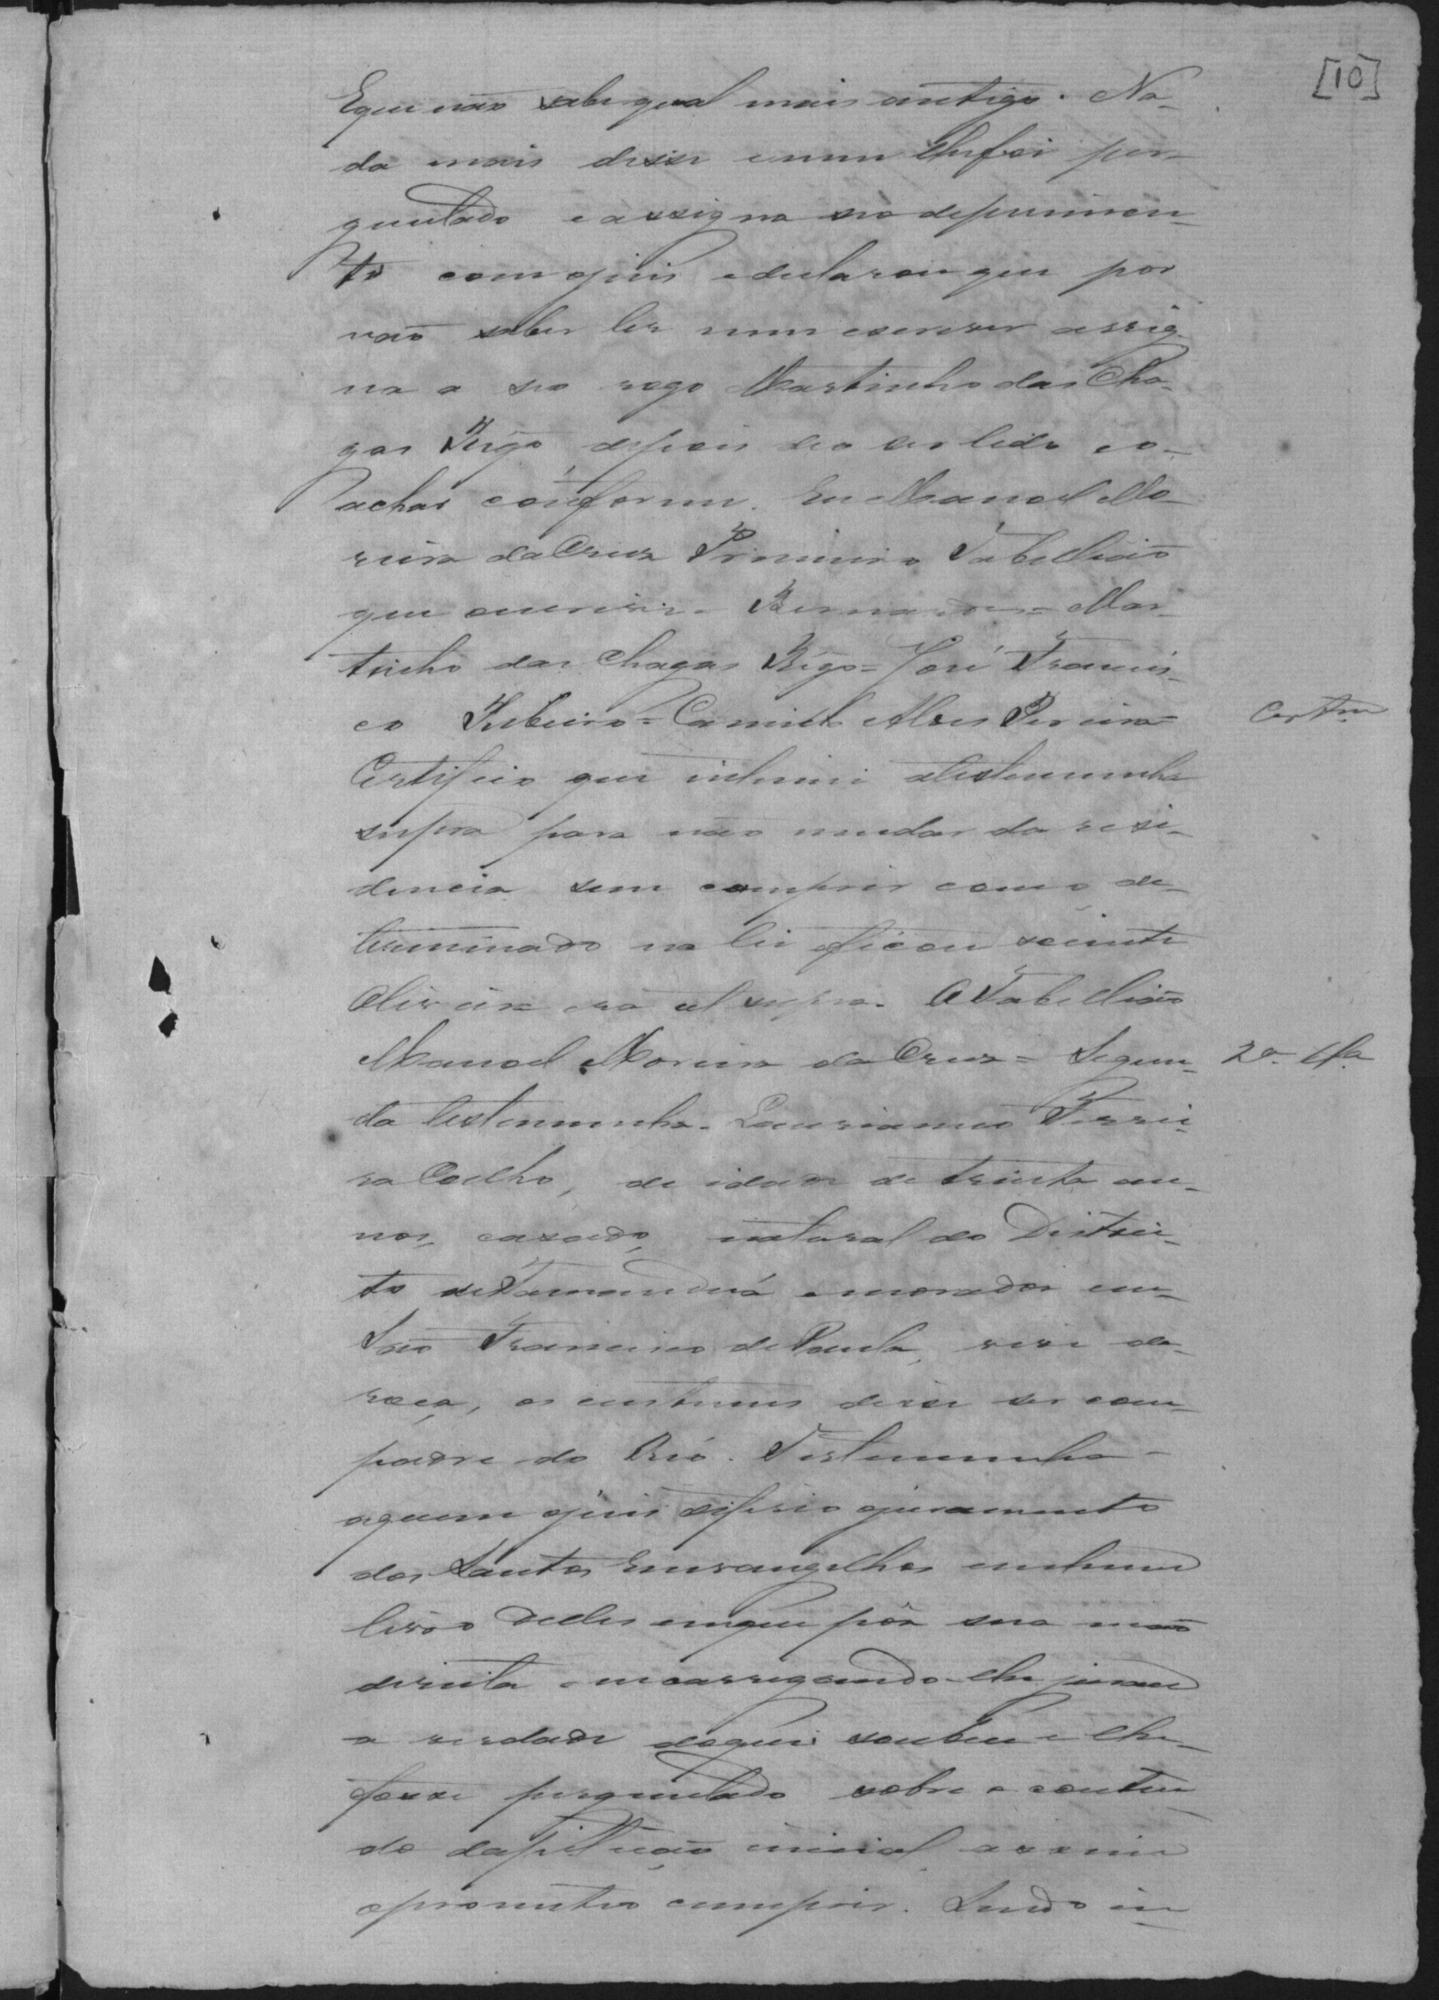 [10]
E que não sabe qual mais antigo. Na-
da mais disse e nem lhe foi per-
guntado e assigna seo depoimen-
to com o juis e declarou que por
não saber ler nem escrever assig-
na a seo rogo Martinho das Cha-
gas Rigo depois de o ser lido e o
achar conforme. Eu Manoel Mo-
reira da Crus Primeiro Tabellião
que escrevi = Bernardes = Mar-
tinho das Chagas Rigo = José Francis-
co Ribeiro = Camillo Alves Pereira =
Certifico que intimei a testemunha
Cert.m
supra para não mudar da resi-
dencia sem cumprir como de-
terminado na lei e ficou sciente
Oliveira era ut supra. O Tabellião
Manoel Moreira da Crus = Segun-
2ª Tª
da testemunha. Lauriano Ferrei-
ra Coelho, de idade de trinta an-
nos, casado, natural do Distric-
to de Tamanduá e morador em
São Francisco de Paula, vive de
roça, os custumes disse ser com-
padre do Reó. Testemunha
a quem o juis diferio o juramento
dos Santos Euvangelhos em hum
livro delles em que pôs sua mão
direita e encarregando-lhe jurasse
a verdade do que soubesse e lhe
fosse perguntado sobre o conteu-
do da petição inicial assim
o prometteo cumprir. Sendo in-